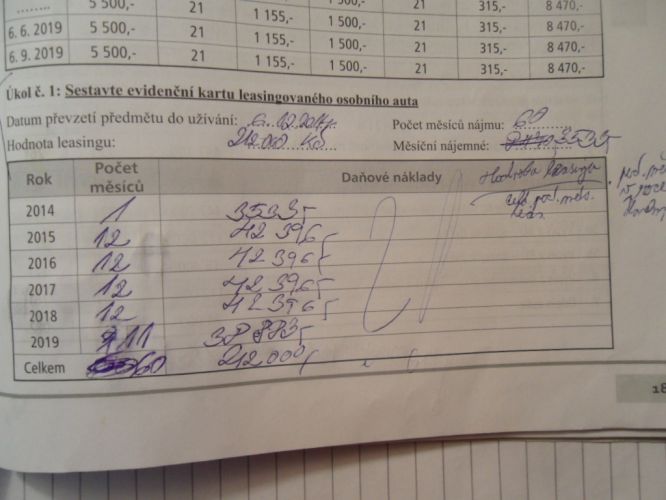 ........ 5 500,- 21 1 155,- 1 500,- 21 315,- 8 470,-
6. 6. 2019 5 500,- 21 1 155,- 1 500,- 21 315,- 8 470,-
6. 9. 2019 5 500,- 21 1 155,- 1 500,- 21 315,- 8 470,-
Úkol č. 1: Sestavte evidenční kartu leasingovaného osobního auta
Datum převzetí předmětu do užívání: 6.12.2014 Počet měsíců nájmu: 60
Hodnota leasingu: 212.000 Kč Měsíční nájemné: 3535
Rok Počet měsíců Daňové náklady Hodnota leasingu
2014 1 3535
2015 12 42 396
2016 12 42 396
2017 12 42 396
2018 12 42 396
2019 11
Celkem 60 212.000
18